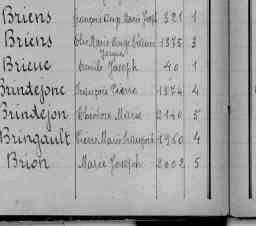 Briens François Ange Marie Josph 321 1
Briens Marie Ange 1375 3
Jacques
Brieuc Camille Joseph 40 1
Brindejonc François Pierre 1574 4
Brindejon Théodore Marie 2140 5
Bringault Pierre Marie François 1960 4
Brion Marie Joseph 2002 5